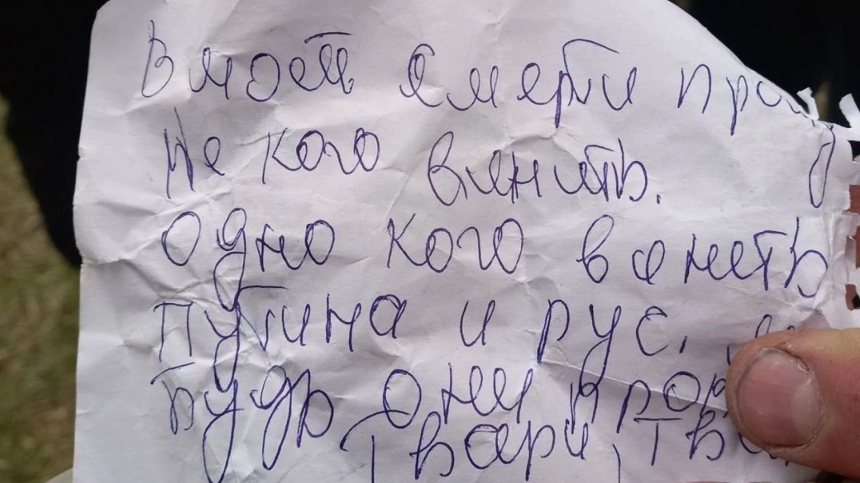 В моей смерти про
Не кого винить.
Одно кого венить
Путина и рус.
Будь они
Твари, Тв